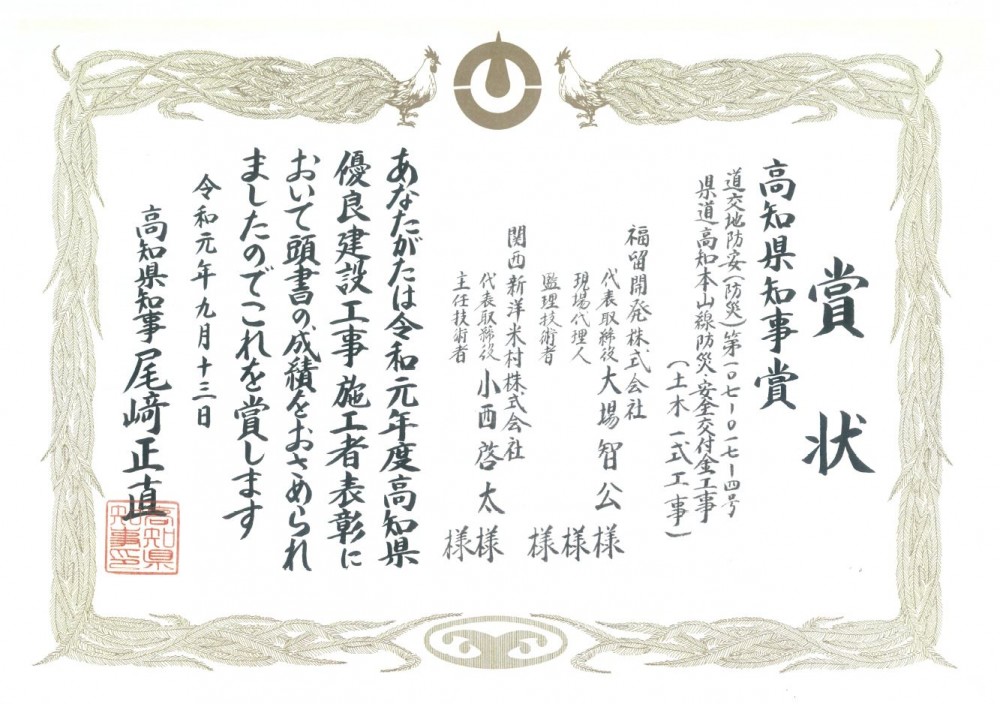 賞状
高知県知事賞
道交地防安(防災)第一〇七-〇一七-四号
県道高知本山線防災・安全交付金工事
(土木一式工事)
福留開発株式会社
代表取締役 大場智公 様
現場代理人 様
監理技術者 様
関西新洋米村株式会社
代表取締役 小西啓太 様
主任技術者 様
あなたがたは令和元年度高知県
優良建設工事施工者表彰に
おいて頭書の成績をおさめられ
ましたのでこれを賞します
令和元年九月十三日
高知県知事 尾﨑正直
高知県知事印